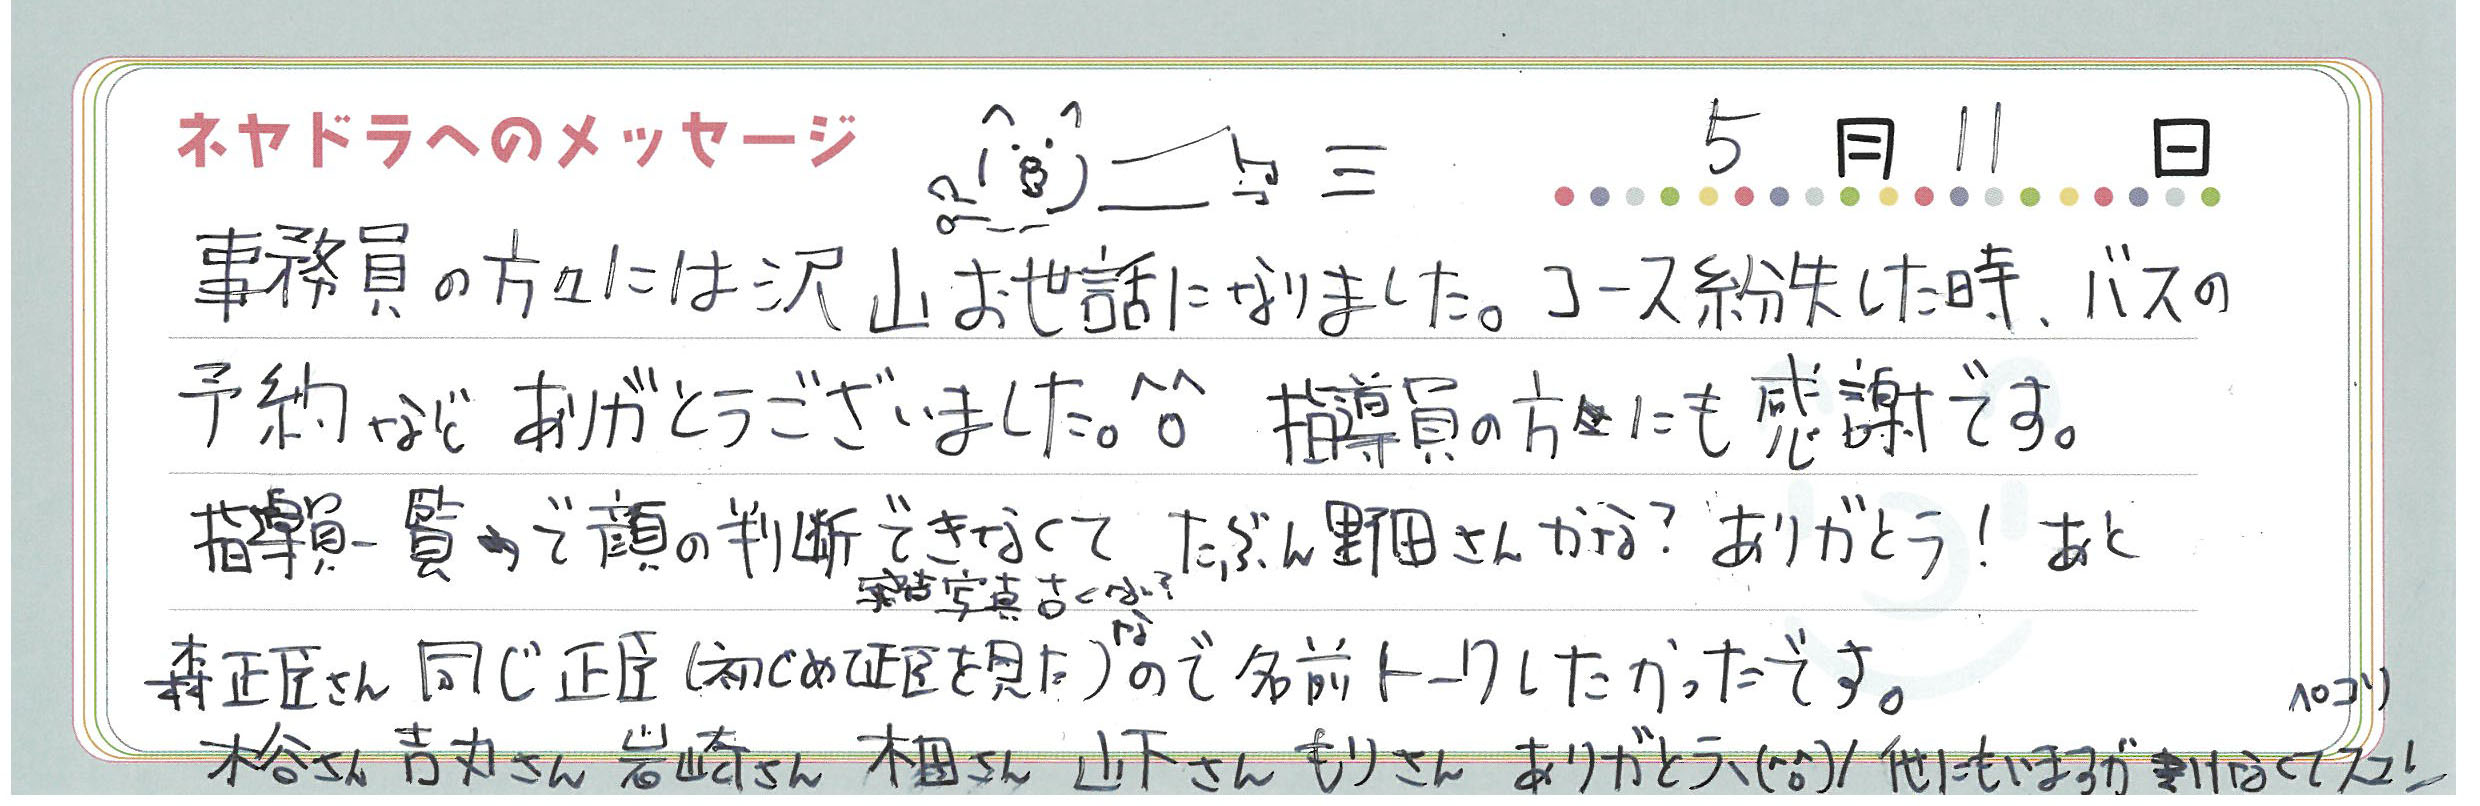 ネヤドラへのメッセージ
5月11日
事務員の方々には沢山お世話になりました。コース紛失した時、バスの
予約などありがとうございました。^o^ 指導員の方々にも感謝です。
指導員一覧で顔の判断できなくて たぶん野田さんかな?ありがとう! あと
写真古くない?
森正臣さん 同じ正臣(初じめて正臣を見た)なので名前トークしたかったです。
ペコリ
木谷さん 吉丸さん 岩崎さん 山下さん もりさん ありがとう、(^o^)/ 他にもいますが書けなくてスマン